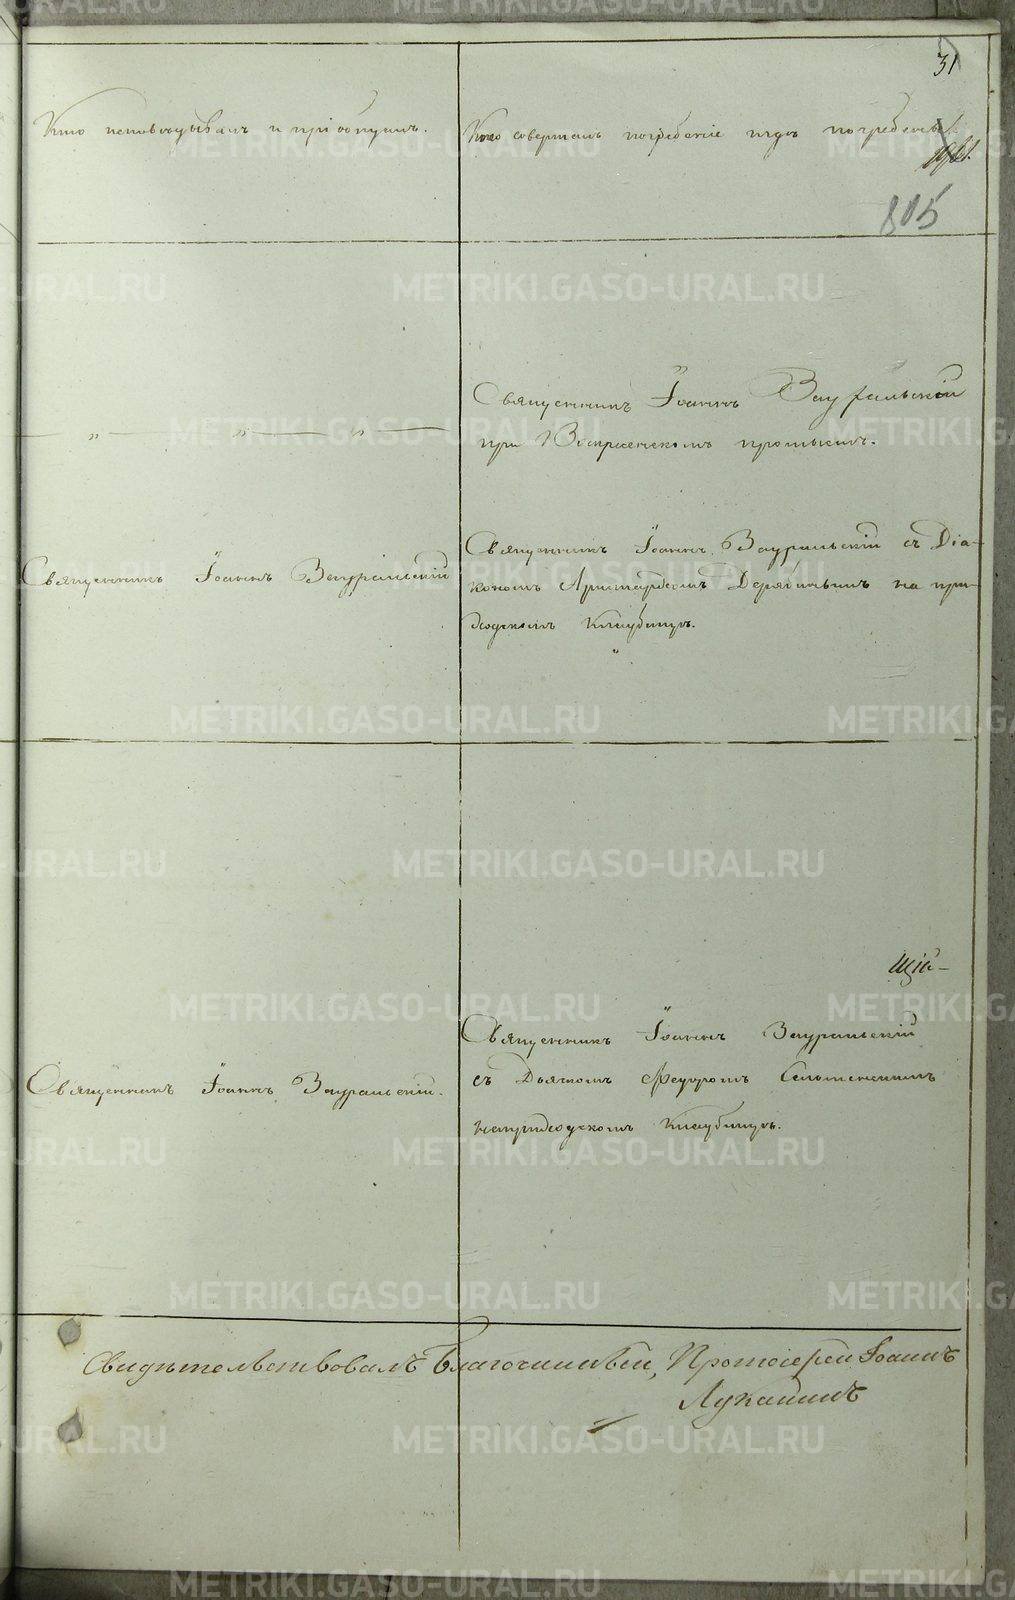 31
Кто исповѣдывалъ и пріобщалъ.
Кто совершалъ погребеніе и гдѣ погребены
815
Священникъ Іоаннъ Зауральскій
при Воскресенскомъ
Священникъ Іоаннъ Зауральскій
Священникъ Іоаннъ Зауральскій съ Діа-
кономъ Аристархомъ Дерябинымъ на при-
ходскомъ кладбищѣ.
щій-
Священникъ Іоаннъ Зауральскій.
Священникъ Іоаннъ Зауральскій
съ Дьячкомъ Федоромъ
на приходскомъ кладбищѣ.
Свидѣтельствовалъ Благочинный, Протоіерей Іоаннъ
Лукашинъ
METRIKI.GASO-URAL.RU